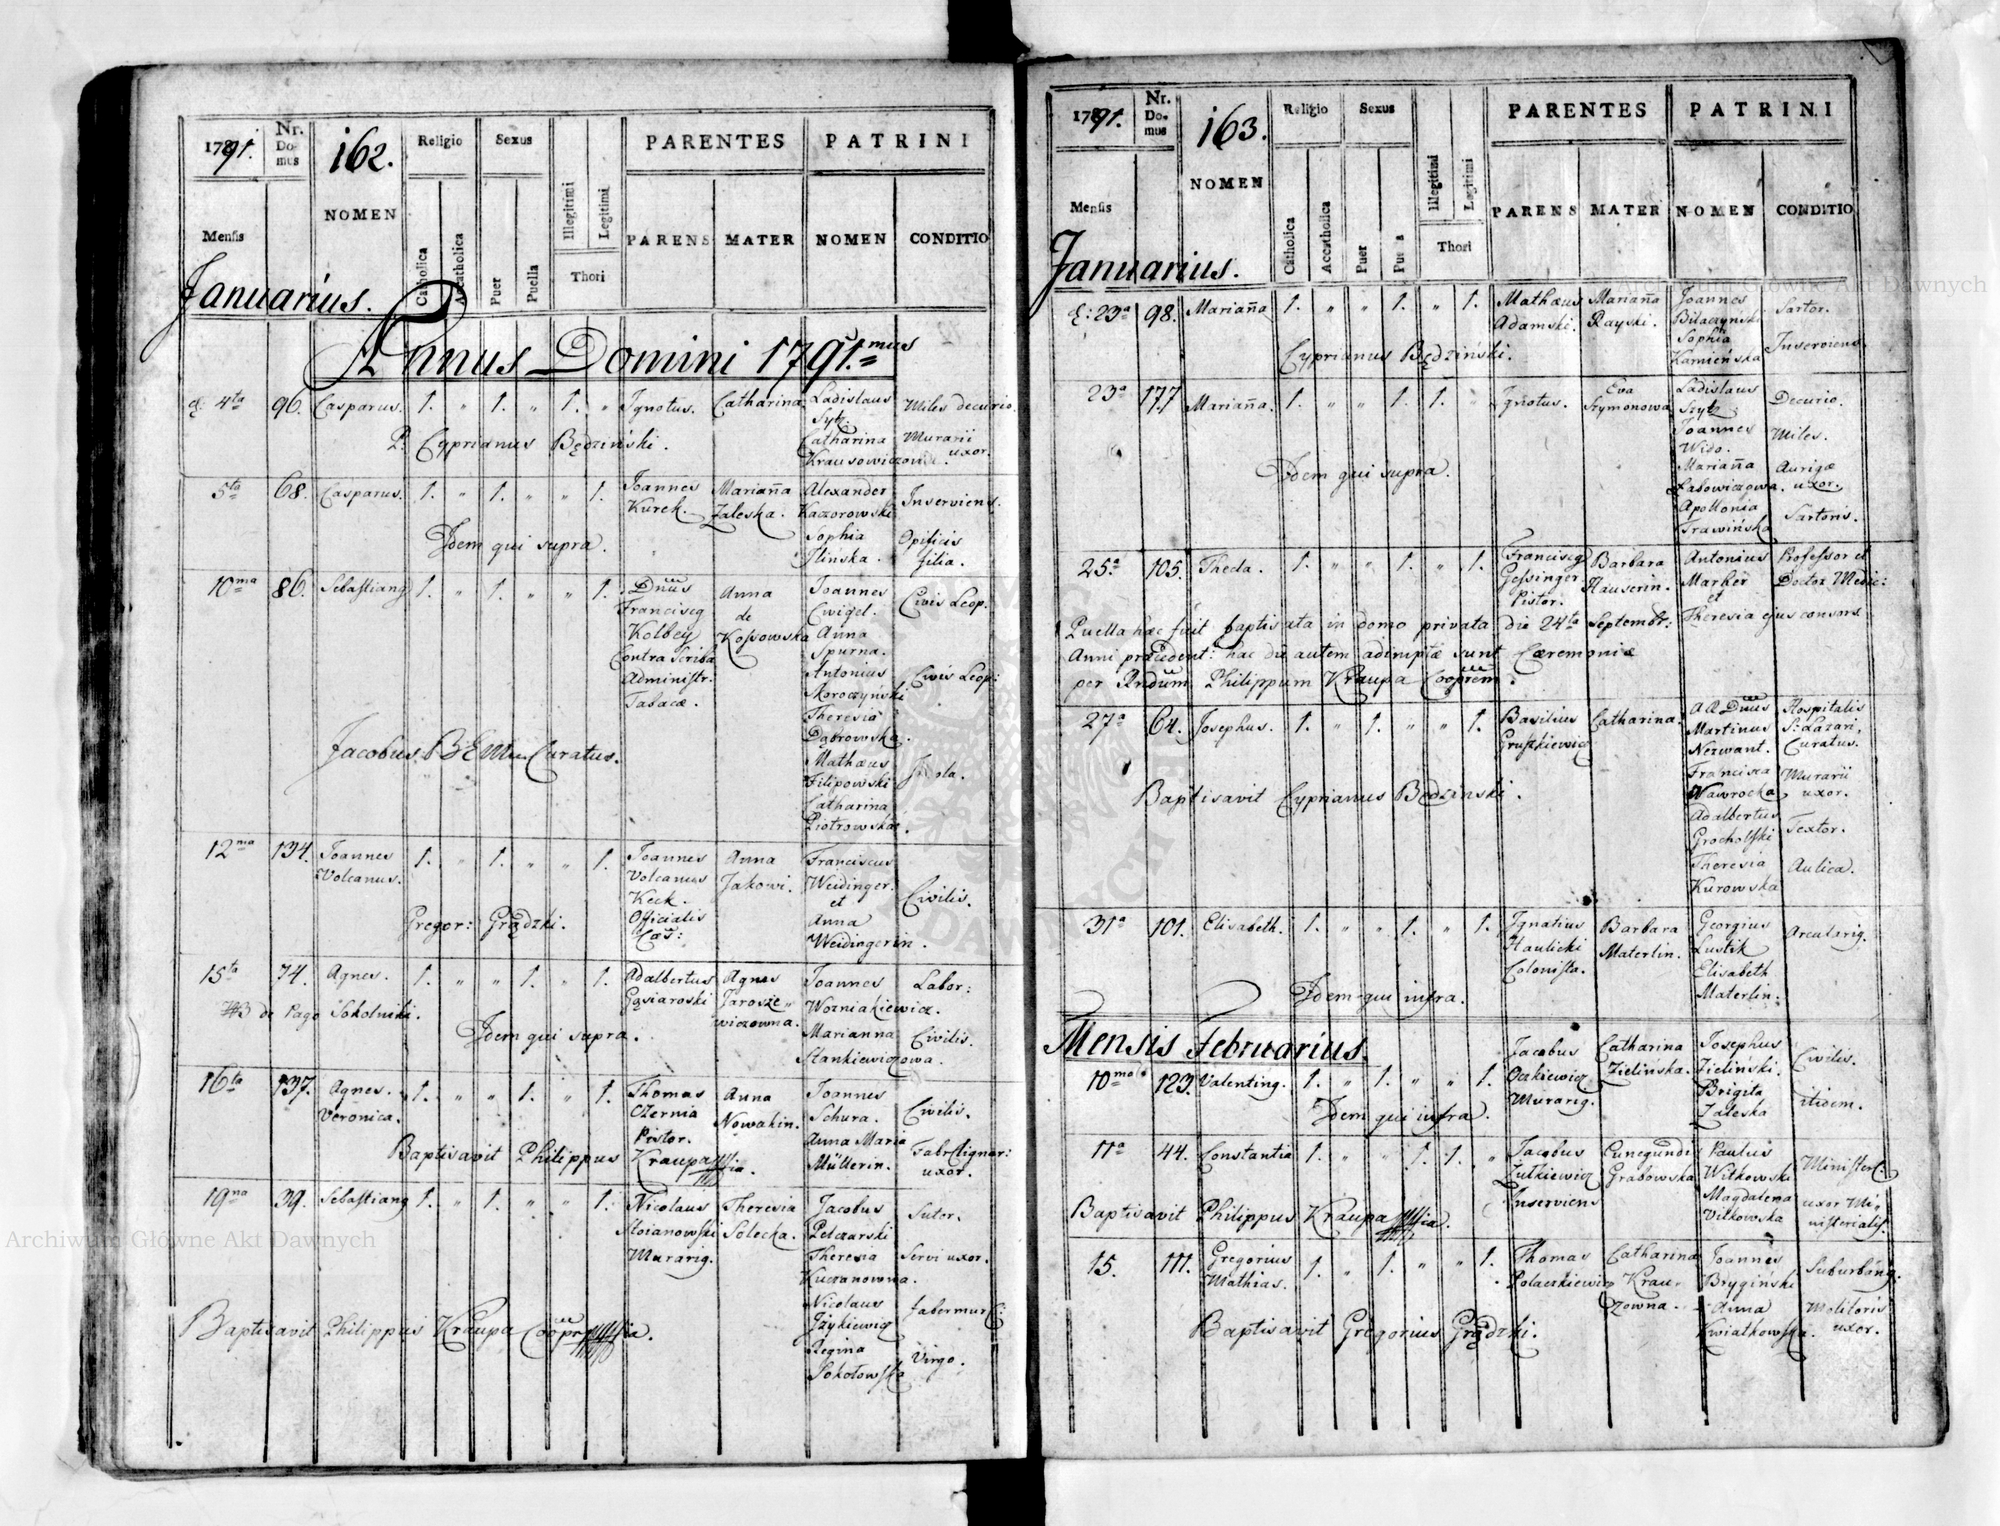 1791.
Nr. Domus
162.
NOMEN
Religio
Catholica
Acatholica
Sexus
Puer
Puella
Illegitimi
Legitimi
Thori
PARENTES
PARENS MATER
PATRINI
NOMEN CONDITIO
Mensis
Januarius.
Annus Domini 1791.mus
4ta 96. Casparus. 1. " 1. " 1. " Ignotus. Catharina. Ladislaus Miles decurio.
Syk.
P. Cyprianus Będziński. Catharina Murarii
Krausowiczowa. uxor.
5ta 68. Casparus. 1. " 1. " " 1. Joannes Marianna Alexander Inserviens.
Kurek. Zaleska. Kaczorowski
Idem qui supra. Sophia Opificis
Ilinska. filia.
10ma 86. Sebastianq 1. " 1. " " 1. Dnus Anna Joannes Civis Leop.
Franciscq de Cwigel.
Kolbey Kossowska Anna
Contra Scriba Spurna.
Administr. Antonius Civis Leop:
Tabacæ. Skroczyński
Theresia
Dąbrowska.
Jacobus BEM Curatus. Mathæus
Filipowski
Catharina
Piotrowska.
12ma 134. Joannes 1. " 1. " " 1. Joannes Anna Franciscus
Volcanus. Volcanus Jakowi. Weidinger. Civilis.
Keck. et
Gregor: Grądzki. Officialis Anna
Weidingerin.
15ta 74. Agnes. 1. " " 1. " 1. Adalbertus Agnes Joannes Labor:
Gąsiaroski Jarosze" Wozniakiewicz.
#3 de Pago Sokolniki. wiczowna. Marianna Civilis.
Idem qui supra. Stankiewiczowa.
16ta 137. Agnes. 1. " " 1. " 1. Thomas Anna Joannes Civilis.
Veronica. Czernia Nowakin. Schura.
Pistor. Anna Maria Fabr. lignar:
Baptisavit Philippus Kraupa mpia. Müllerin. uxor.
19na 39. Sebastianq 1. " 1. " " 1. Nicolaus Theresia Jacobus Sutor.
Stoianowski Solecka. Pelczarski
Murarig. Theresia Servi uxor.
Kuczanowna.
Nicolaus Faber mur:
Baptisavit Philippus Kraupa Cooprr mpia. Jaykiewicz
Regina Virgo.
Sokołowska
1791.
Nr. Domus
163.
NOMEN
Religio
Catholica
Accatholica
Sexus
Puer
Puella
Illegitimi
Legitimi
Thori
PARENTES
PARENS MATER
PATRINI
NOMEN CONDITIO
Mensis
Januarius.
23a 98. Marianna 1. " " 1. " 1. Mathæus Marianna Joannes Sartor.
Adamski. Rayski. Bilaczynski
Sophia Inserviens
Cyprianus Będziński. Kamieńska
23a 177 Marianna. 1. " " 1. 1. " Ignotus. Eva Ladislaus Decurio.
Szymonowa Szyk
Joannes Miles.
Wido.
Idem qui supra. Marianna Aurigæ
Labowiczowa. uxor.
Apollonia Sartoris.
Trawińska
25a 105. Theda. 1. " " 1. " 1. Franciscq Barbara Antonius Professor et
Gessinger Hauserin. Marher Doctor Medic:
Pistor. et
Puella hæc fuit baptisata in domo privata die 24ta Septembr: Theresia ejus consors
Anni præcedent: hac die autem adimptæ sunt Cæremoniæ
per Rndum Philippum Kraupa Cooprem.
27a 64. Josephus. 1. " 1. " " 1. Basilius Catharina. AR Dnus Hospitalis
Gruszkiewicz Martinus S. Lazari,
Nerwant. Curatus.
Francisca Murarii
Baptisavit Cyprianus Będzinski. Wawrocka uxor.
Adalbertus
Grocholski Textor.
Theresia Aulica.
Kurowska
31a 101. Elisabeth. 1. " " 1. " 1. Ignatius Barbara Georgius Arcularig.
Haulicki Materlin. Lustik
Colonista. Elisabeth
Idem qui infra. Materlin.
Mensis Februarius.
10ma 123. Valentinq. 1. " 1. " " 1. Jacobus Catharina Josephus Civilis.
Ockiewicz Zielinska. Zielinski.
Murarig. Brigita itidem.
Idem qui infra. Zaleska
11a 44. Constantia 1. " " 1. 1. " Jacobus Cunegundi Paulus
Zutkiewicz Grabowska Witkowski
Inserviens Magdalena uxor Mi-
Baptisavit Philippus Kraupa mpia. Vitkowska nisterialis.
15. 111. Gregorius 1. " 1. " " 1. Thomas Catharina Joannes Suburbang.
Mathias. Polaczkiewicz Krau- Brygiński
zowna. Anna Molitoris
Baptisavit Gregorius Grądzki. Kwiatkowska. uxor.
Archiwum Główne Akt Dawnych
Archiwum Główne Akt Dawnych